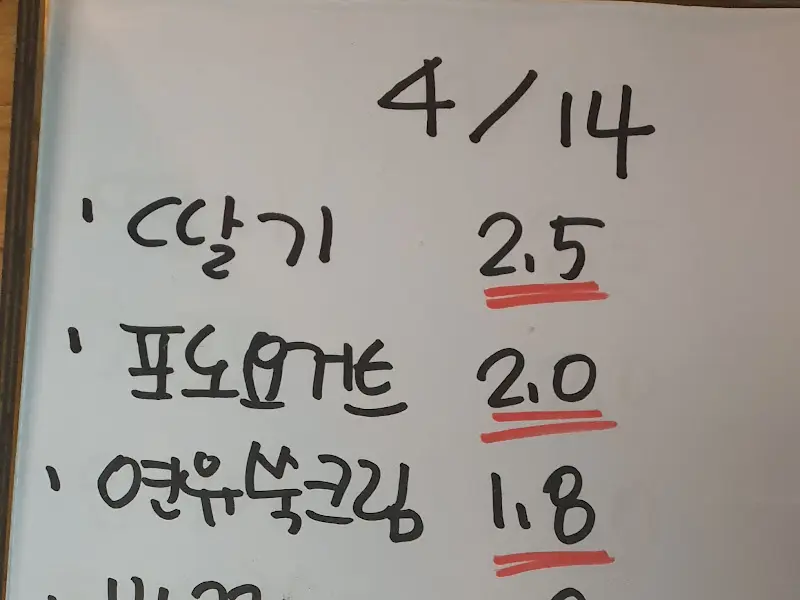 4/14
' 딸기 2.5
' 포도요거트 2.0
' 연유쑥크림 1.8